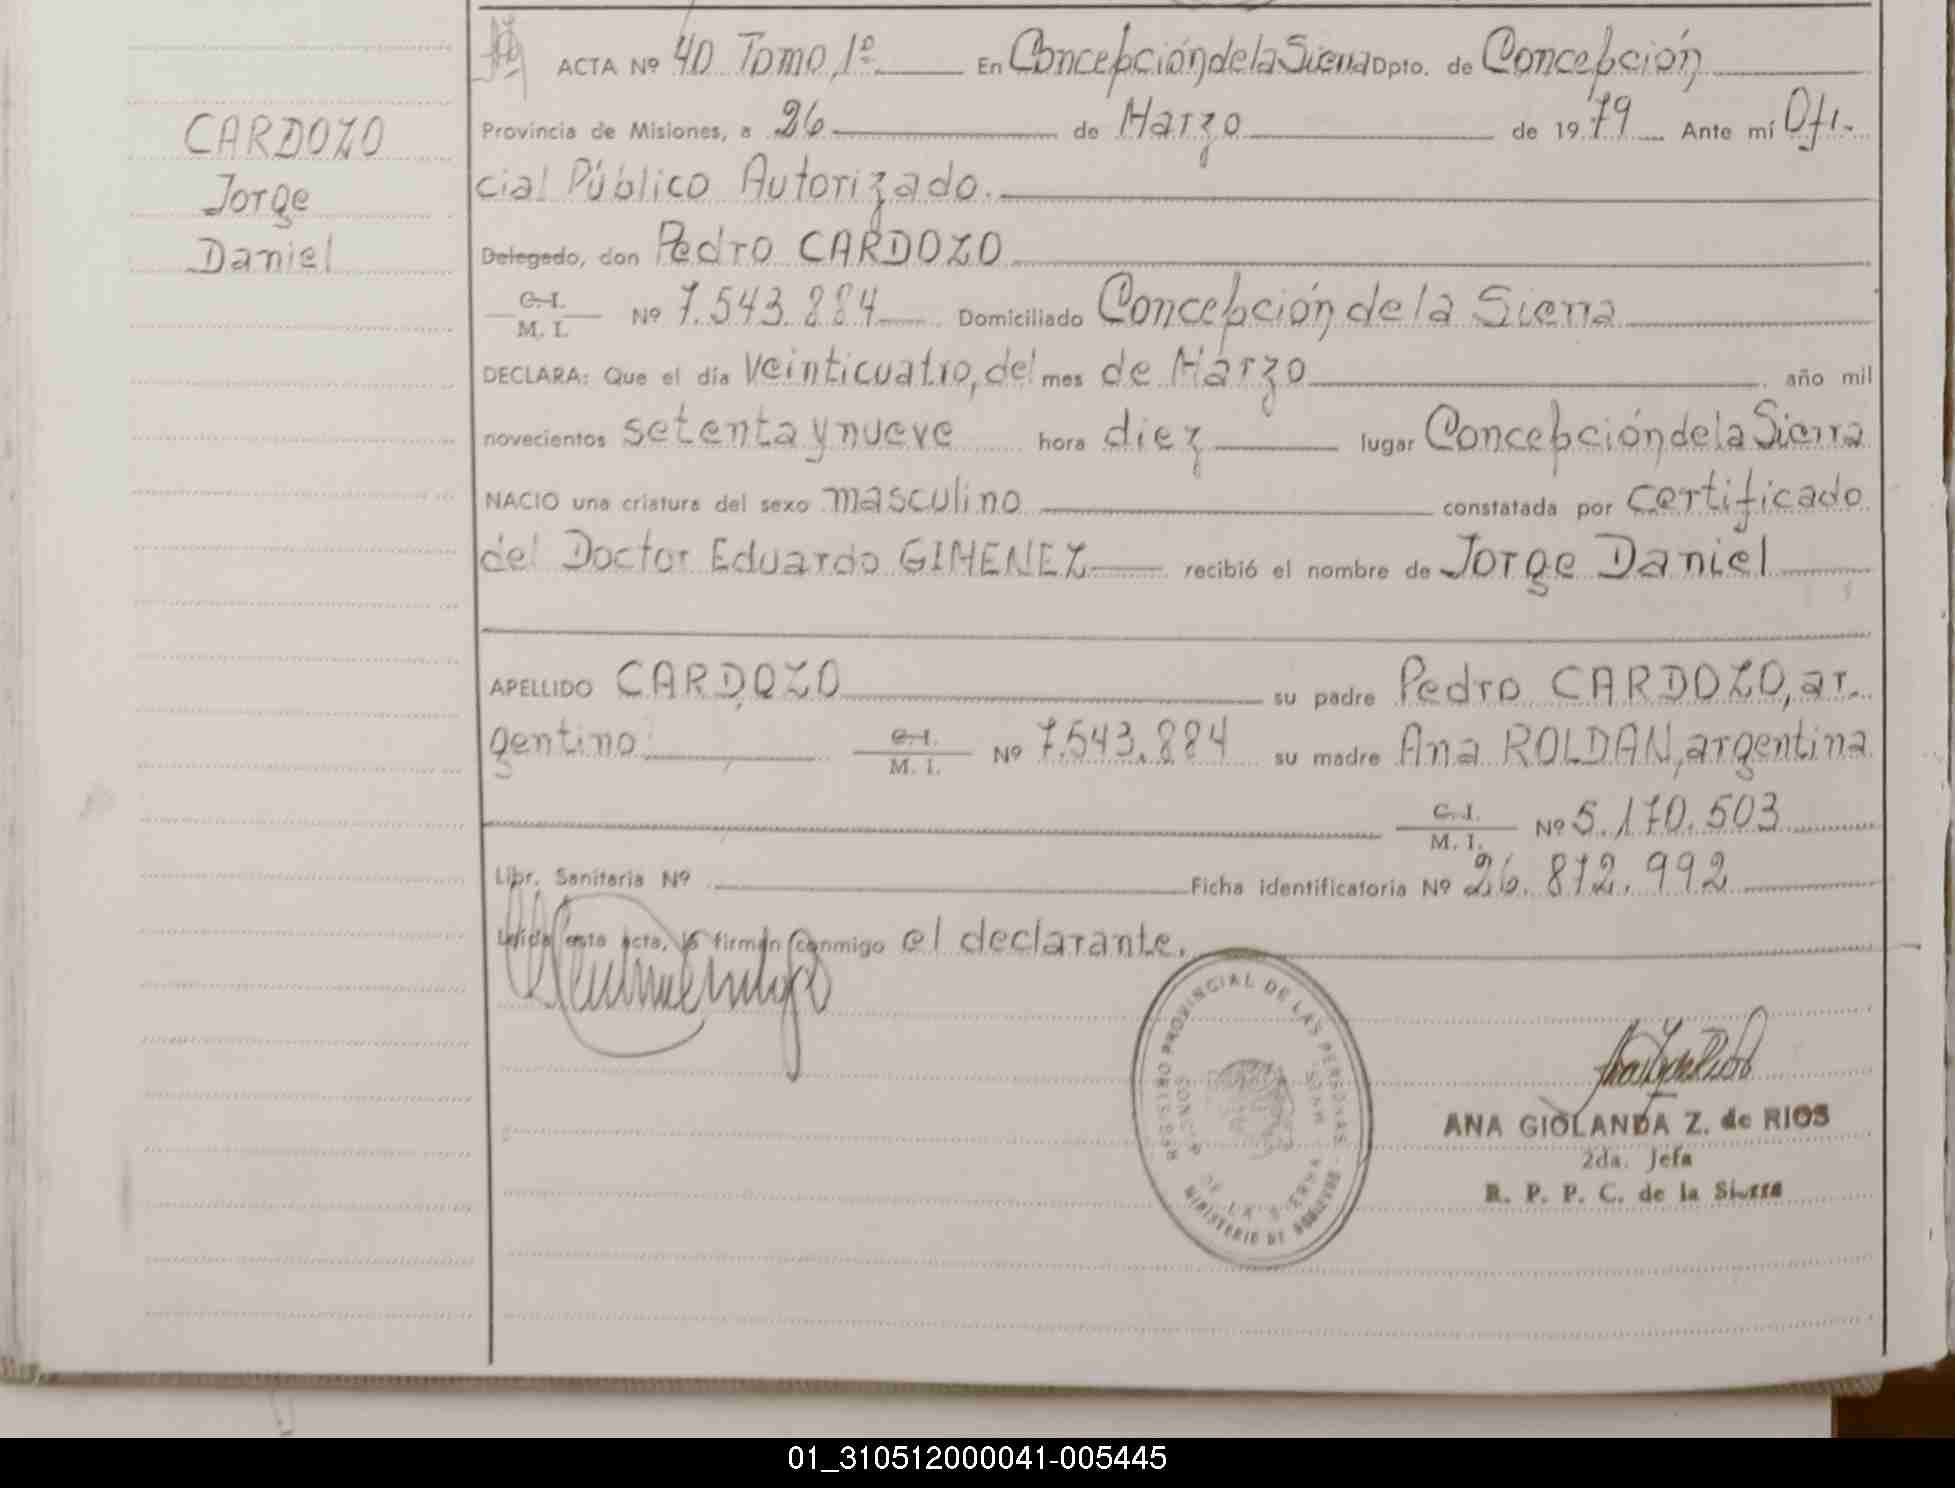 ACTA Nº 40 Tomo 1º En Concepción de la Sierra Dpto. de Concepción
Provincia de Misiones, a 26 de Marzo de 1979 Ante mí Ofi-
cial Público Autorizado.
CARDOZO
Jorge
Daniel
Delegado, don Pedro CARDOZO
C. I.
M. I. Nº 7.543.884 Domiciliado Concepción de la Sierra
DECLARA: Que el día veinticuatro, del mes de Marzo año mil
novecientos setenta y nueve hora diez lugar Concepción de la Sierra
NACIO una criatura del sexo masculino constatada por certificado
del Doctor Eduardo GIMENEZ recibió el nombre de Jorge Daniel
APELLIDO CARDOZO su padre Pedro CARDOZO, ar-
gentino C. I.
M. I. Nº 7.543.884 su madre Ana ROLDAN, argentina
C. I.
M. I. Nº 5.170.503
Libr. Sanitaria Nº Ficha identificatoria Nº 26.872.992
Leída esta acta, la firman conmigo el declarante.
REGISTRO PROVINCIAL DE LAS PERSONAS
DE LA SIERRA
MINISTERIO DE GOBIERNO
ANA GIOLANDA Z. de RIOS
2da. Jefa
R. P. P. C. de la Sierra
01_310512000041-005445